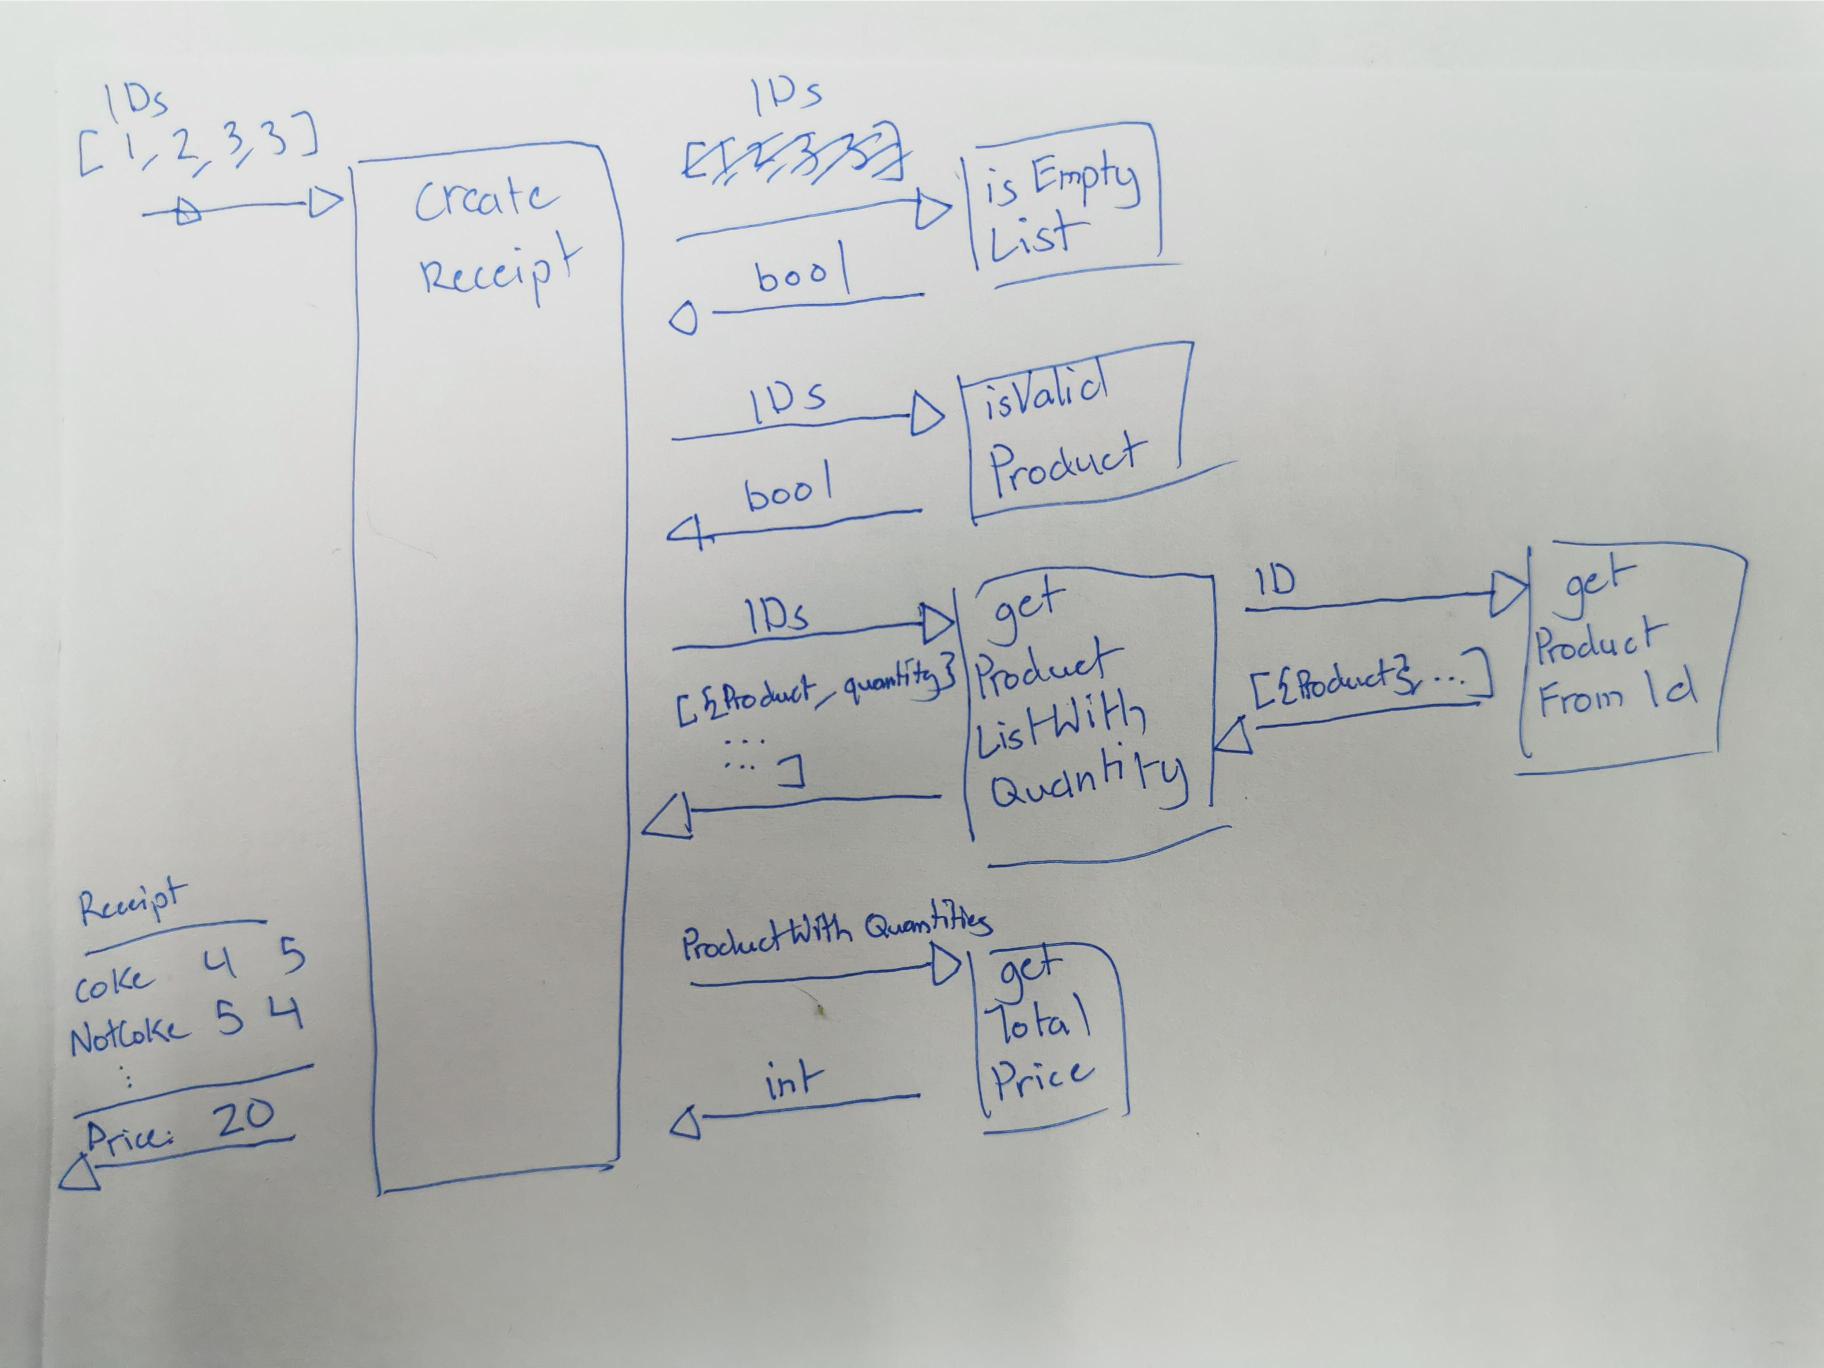 IDs
[1, 2, 3, 3]
Create
Receipt
IDs
[1, 2, 3, 3]
isEmpty
List
bool
IDs
isValid
Product
bool
IDs
[{Product, quantity}
...
... ]
get
Product
ListWith
Quantity
ID
[{Product}, ...]
get
Product
From Id
ProductWith Quantities
get
Total
Price
int
Receipt
Coke 4 5
NotCoke 5 4
⋮
Price: 20